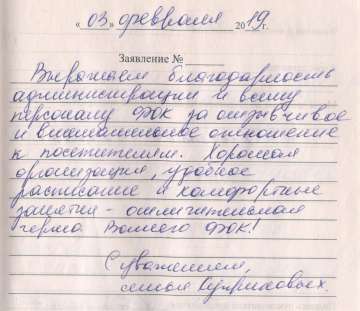 « 03 » февраля 2019 г.
Заявление № ____
Выражаем благодарность
администрации и всему
персоналу ФОК за отзывчивое
и внимательное отношение
к посетителям. Хорошая
организация, удобное
расписание и комфортные
занятия - отличительная
черта Вашего ФОК!
С уважением,
семья